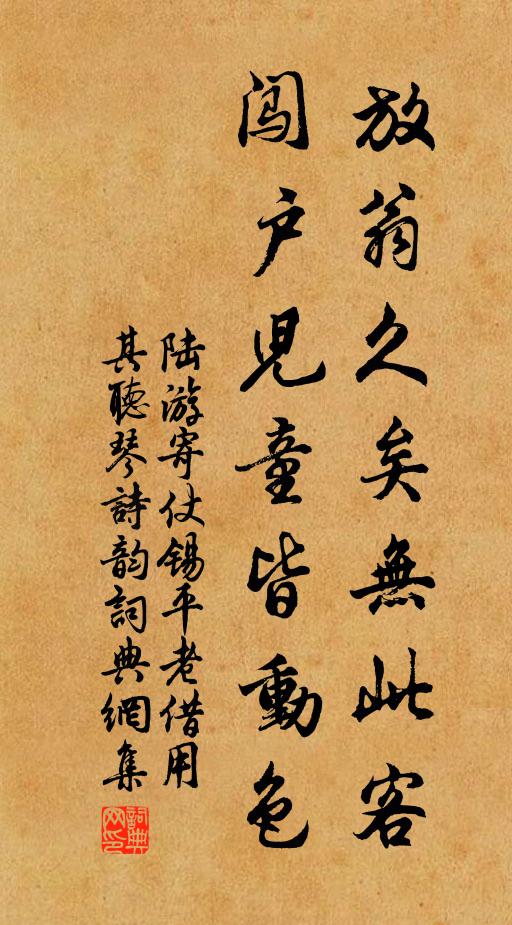 放翁久矣無此客
闯户兒童皆動色
陆游寄仗锡平老借用
其聽琴詩韵詞典網集
詞典网印